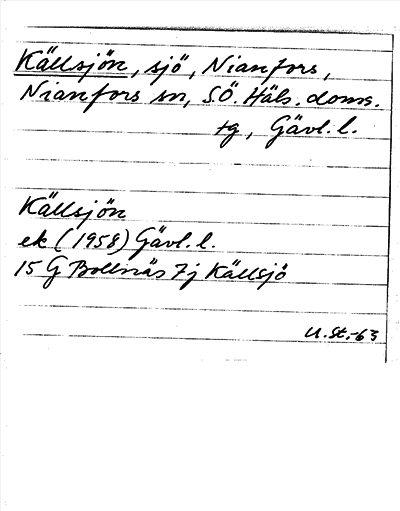 Källsjön, sjö, Nianfors,
Nianfors sn, S.Ö. Häls. doms.
tg, Gävl. l.
Källsjön
ek (1958) Gävl. l.
15 G Bollnäs 7j Källsjö
U.St.-63